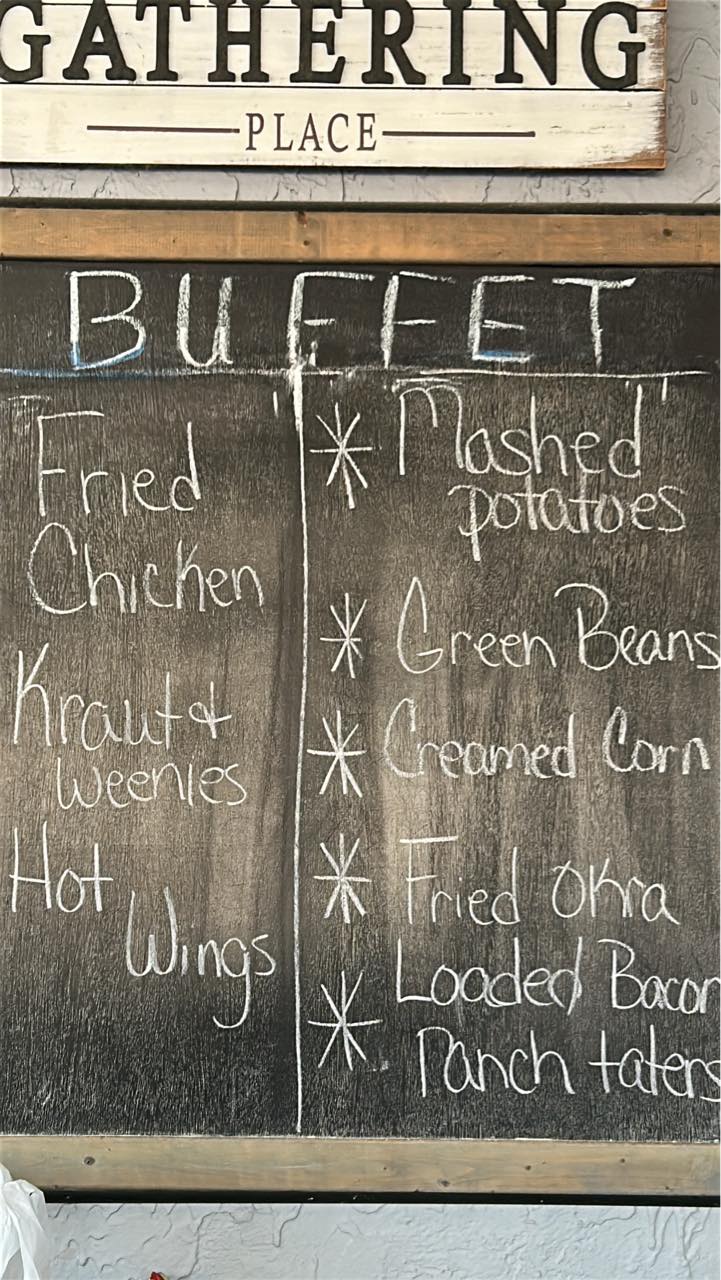 GATHERING
PLACE
BUFFET
Fried
Chicken
Kraut &
weenies
Hot
Wings
* Mashed
potatoes
* Green Beans
* Creamed Corn
* Fried Okra
* Loaded Bacon
Ranch taters